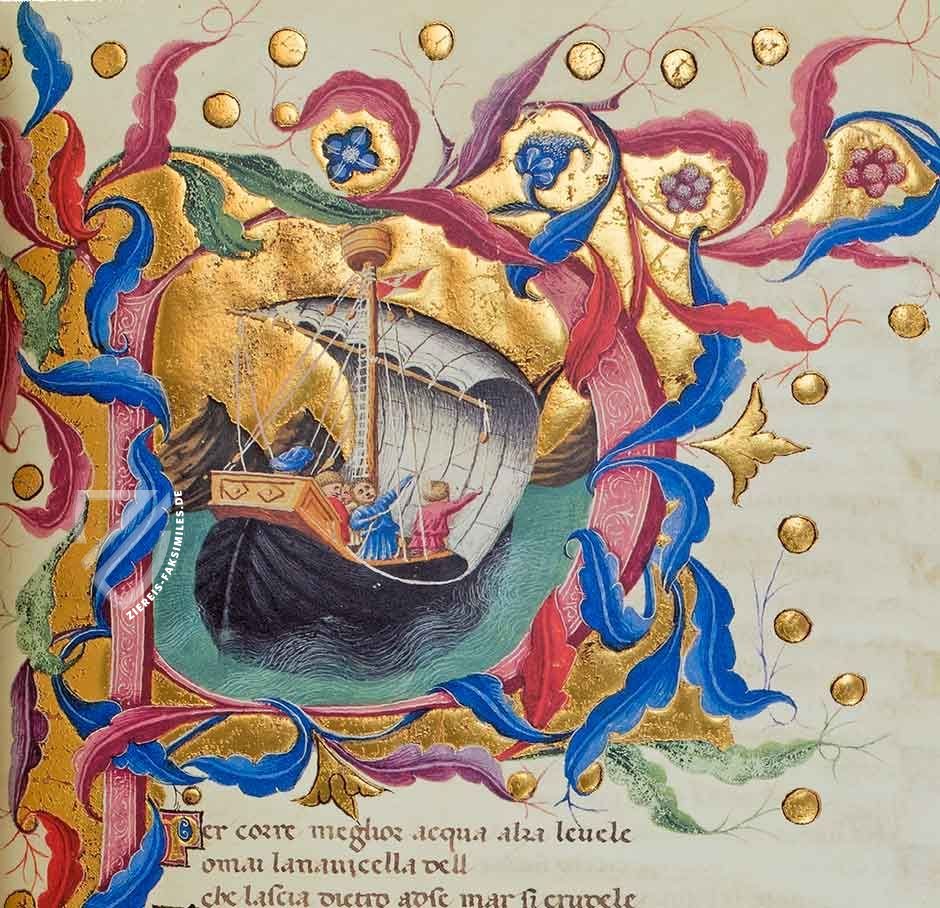 ZIEREIS-FAKSIMILES.DE
Per corre meglior acqua alza leuele
omai lanauicella dell
che lascia dietro adse mar si crudele